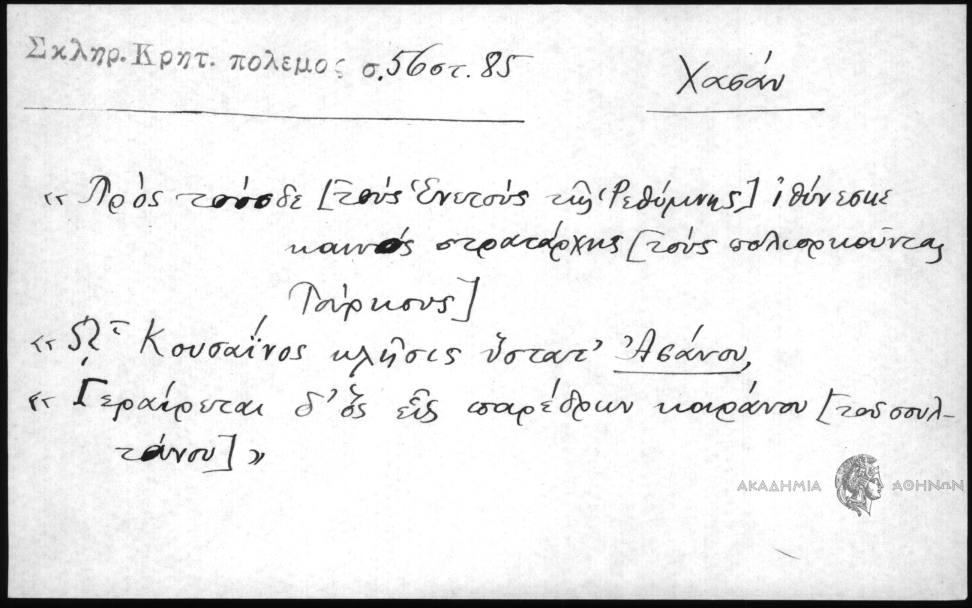 Σκληρ. Κρητ. πολεμος σ. 56 στ. 85
Χασάν
«Πρὸς τούσδε [τοὺς Ἑνετοὺς τῆς Ῥεθύμνης] ἰθύνεσκε
καινὸς στρατάρχης [τοὺς πολιορκοῦντας
Τούρκους]
Κουσαΐνος κλῆσις ὕστατ' Ἀσάνου,
«Γεραίρεται δ' ὃς εἷς παρέδρων κοιράνου [τοῦ σουλ-
τάνου]»
ΑΚΑΔΗΜΙΑ ΑΘΗΝΩΝ